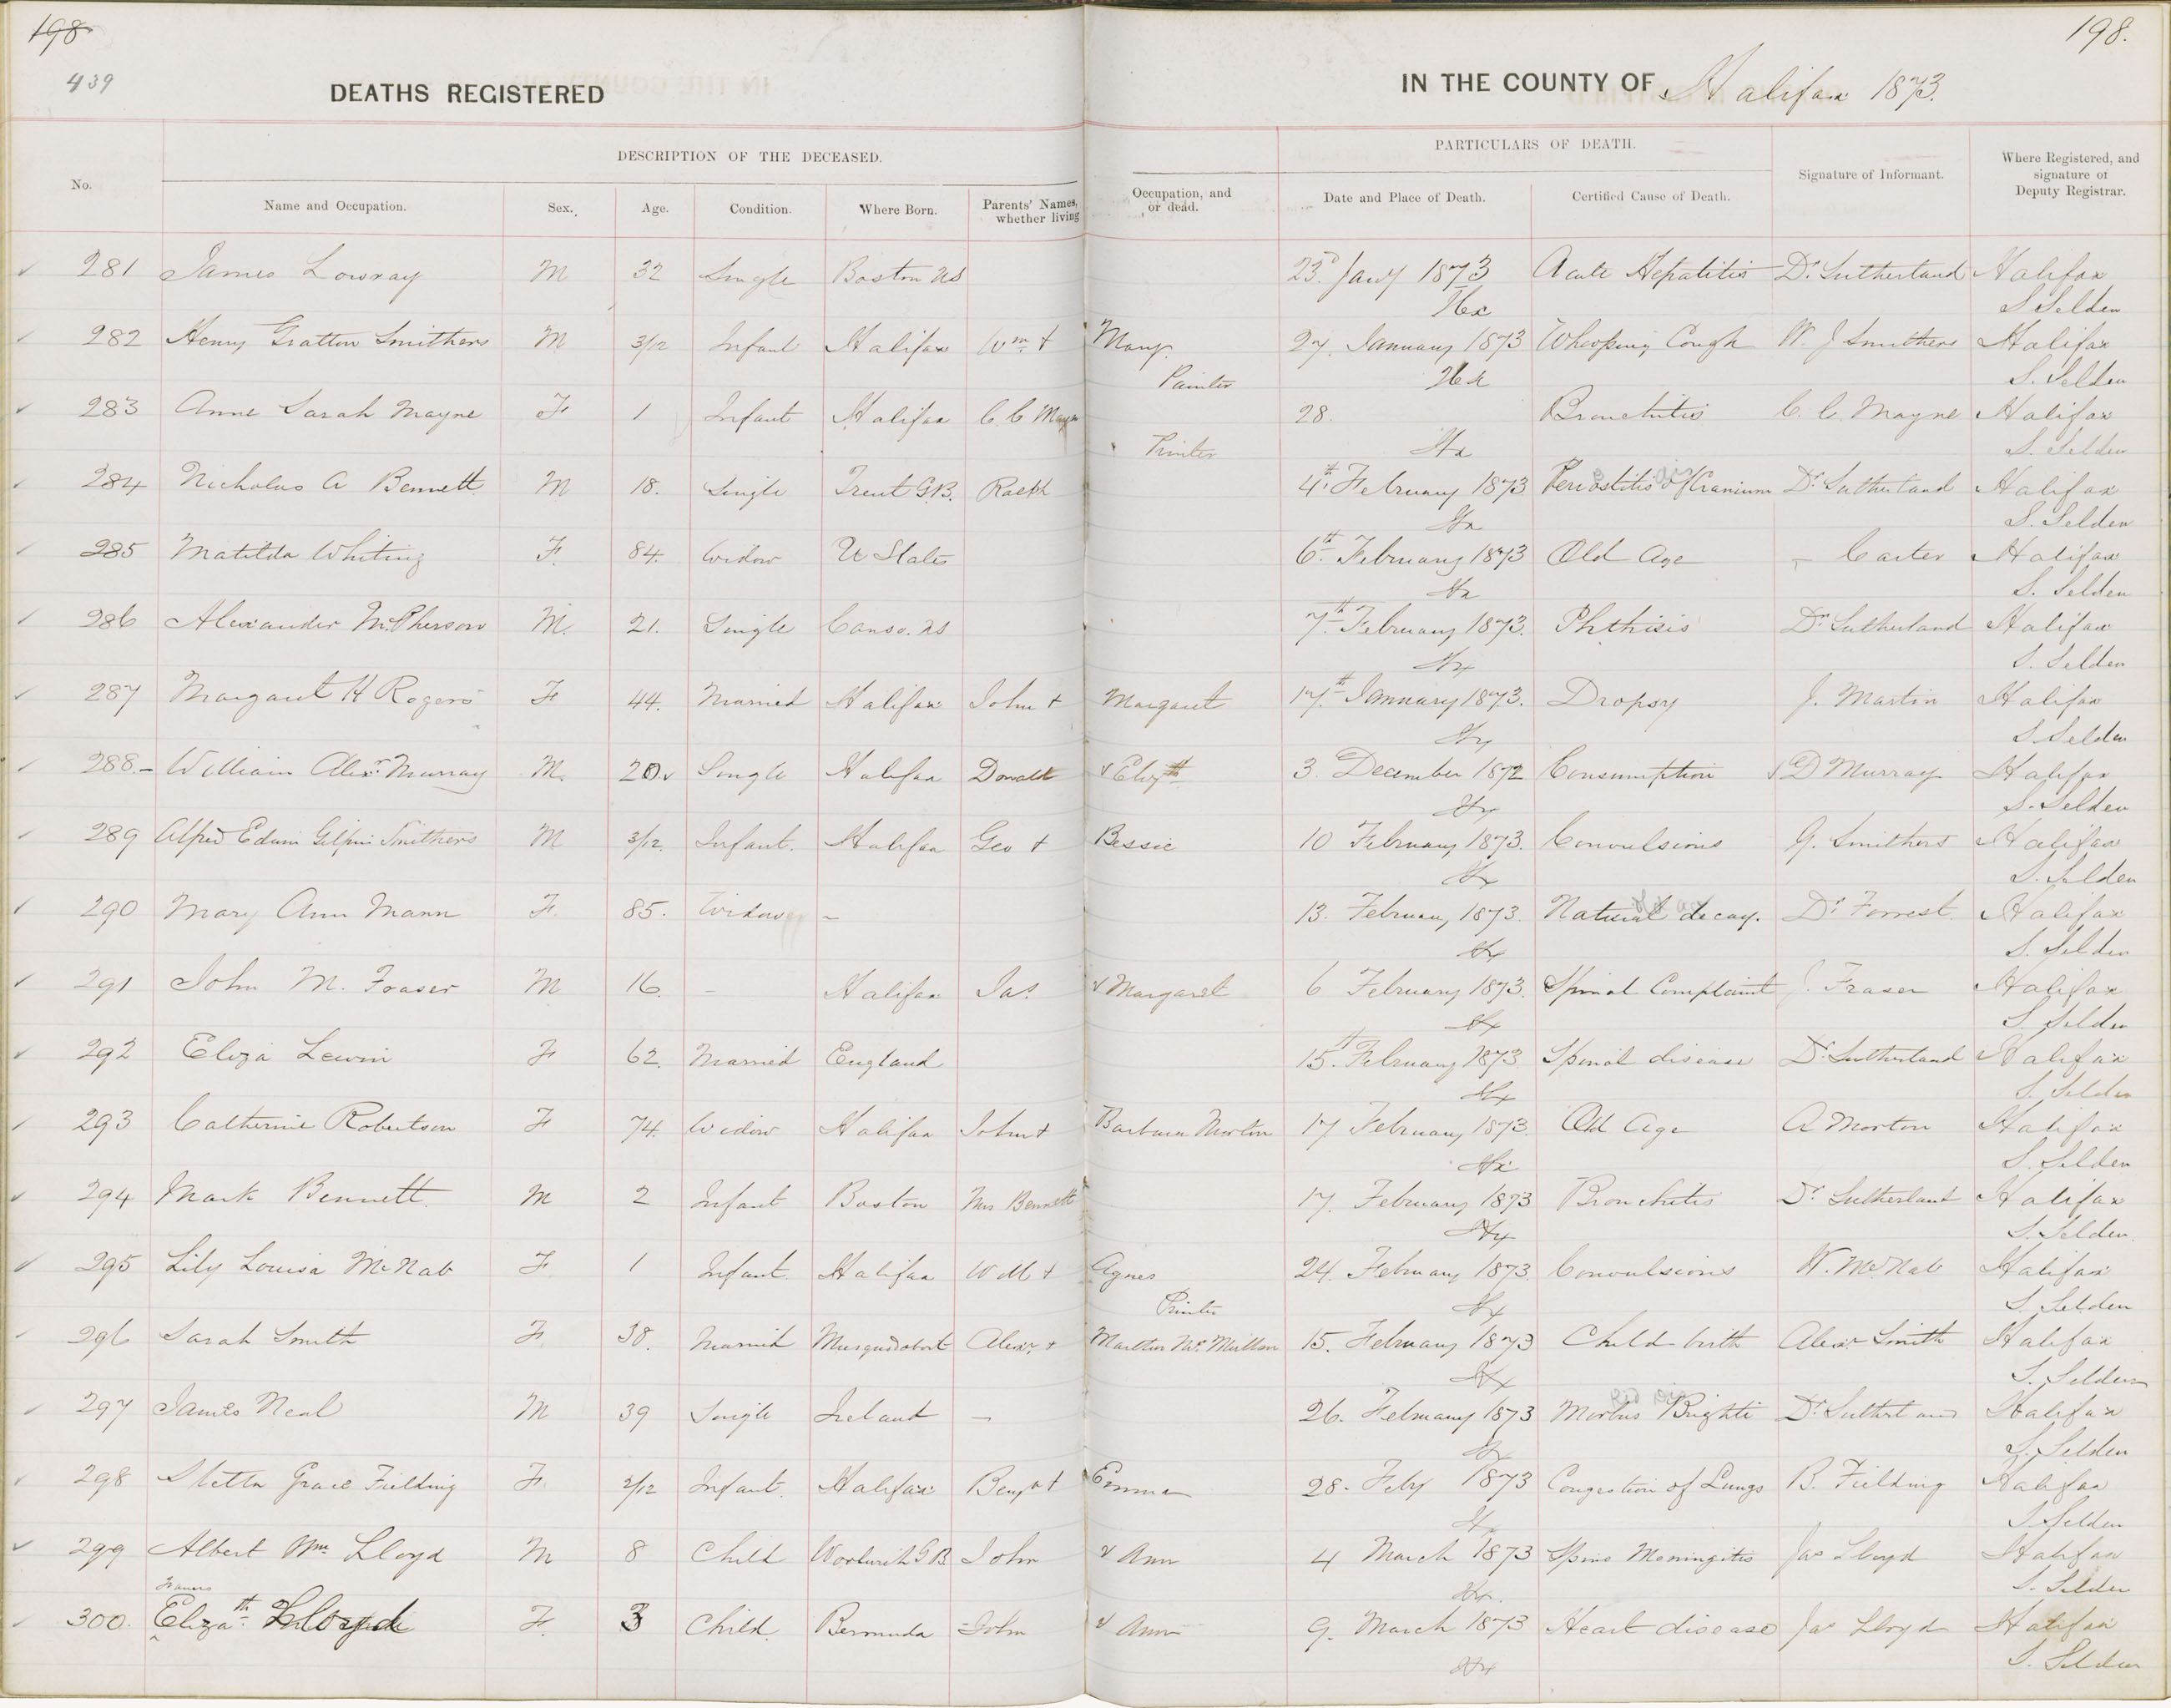 198
439
198.
DEATHS REGISTERED IN THE COUNTY OF Halifax 1873.
DESCRIPTION OF THE DECEASED. PARTICULARS OF DEATH.
No. Name and Occupation. Sex. Age. Condition. Where Born. Parents' Names, whether living Occupation, and or dead. Date and Place of Death. Certified Cause of Death. Signature of Informant. Where Registered, and signature of Deputy Registrar.
281 James Lowray M 32 Single Boston US 23d Jany 1873 Acute Hepatitis Dr. Sutherland Halifax
Hx S Selden
282 Henry Gratton Smithers M 3/12 Infant Halifax Wm + Mary. 27. January 1873 Whooping Cough W. J Smithers Halifax
Painter Hx S. Selden
283 Anne Sarah Mayne F 1 Infant Halifax C. C Mayne 28. Bronchitis C. C. Mayne Halifax
Printer Hx S. Selden
284 Nicholas A Bennett M 18. Single Trent G.B. Ralph 4th February 1873 Periostitis of Cranium Dr. Sutherland Halifax
Hx S. Selden
285 Matilda Whiting F. 84. Widow U States 6th February 1873 Old Age - Carter Halifax
Hx S. Selden
286 Alexander McPherson M. 21. Single Canso. NS 7th February 1873. Phthisis Dr Sutherland Halifax
Hx S. Selden
287 Margaret H Rogers F 44. Married Halifax John + Margaret 17th January 1873. Dropsy J. Martin Halifax
Hx S. Selden
288.- William Alexr. Murray M. 20. Single Halifax Donald & Elizth 3. December 1872 Consumption D Murray Halifax
Hx S. Selden
289 Alfred Edwin Gilpin Smithers M 3/12. Infant. Halifax Geo + Bessie 10 February 1873. Convulsions G. Smithers Halifax
Hx S. Selden
290 Mary Ann Mann F. 85. Widow - 13. February 1873. Natural decay. Dr Forrest. Halifax
Hx S. Selden
291 John M. Fraser M 16. - Halifax Jas. & Margaret 6 February 1873. Spinal Complaint J. Fraser Halifax
Hx S Selden
292 Eliza Lewin F 62. Married England 15th February 1873 Spinal disease Dr. Sutherland Halifax
Hx S. Selden
293 Catherine Robertson F 74. Widow Halifax John + Barbara Morton 17 February 1873. Old Age A Morton Halifax
Hx S. Selden
294 Mark Bennett. M 2 Infant Boston Mrs Bennett 17. February 1873 Bronchitis Dr Sutherland Halifax
Hx S. Selden.
295 Lily Louisa McNab F. 1 Infant. Halifax W M + Agnes 24. February 1873. Convulsions W. McNab Halifax
Printer Hx S. Selden
296 Sarah Smith F. 38. Married Musquodoboit Alexr. + Martha McMullen 15. February 1873 Child birth Alexr Smith Halifax
Hx S. Selden
297 James Neal M 39 Single Ireland - 26. February 1873 Morbus Brighti Dr Sutherland Halifax
Hx S. Selden
298 Stella Grace Fielding F. 2/12 Infant. Halifax Benjn + Emma 28. Feby 1873 Congestion of Lungs B. Fielding Halifax
Hx S Selden
299 Albert Wm. Lloyd M 8 Child Woolwich G B John & Ann 4 March 1873 Spino Meningitis Jas Lloyd Halifax
Hx. S. Selden
Frances
300. Elizath. Lloyd F. 3 Child. Bermuda John & Ann 9. March 1873 Heart disease Jas Lloyd Halifax
Hx S. Selden